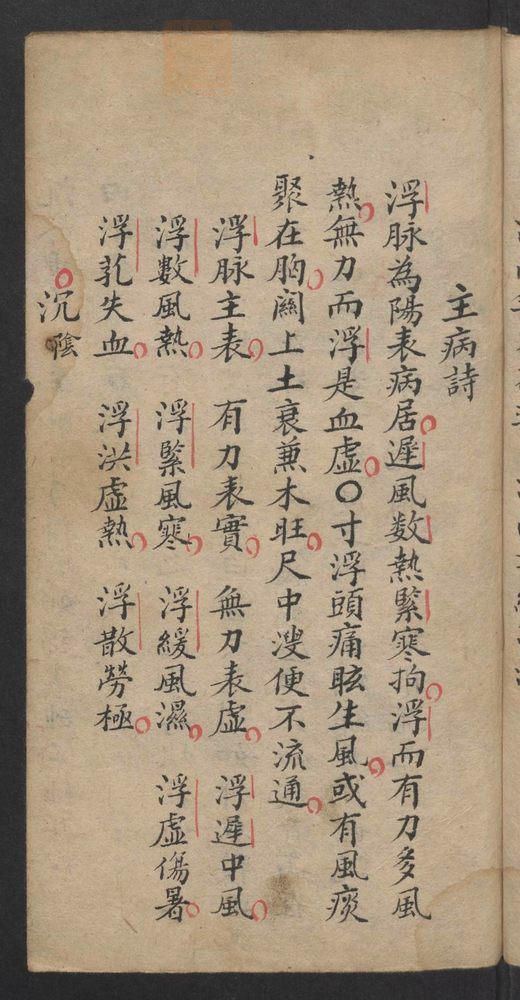 主病詩
浮脉為陽表病居遲風数熱緊寒拘浮而有力多風
熱無力而浮是血虛○寸浮頭痛眩生風或有風痰
聚在胸關上土衰兼木旺尺中溲便不流通
浮脉主表 有力表實 無力表虛 浮遲中風
浮數風熱 浮緊風寒 浮緩風濕 浮虛傷暑
浮芤失血 浮洪虛熱 浮散勞極
沉陰